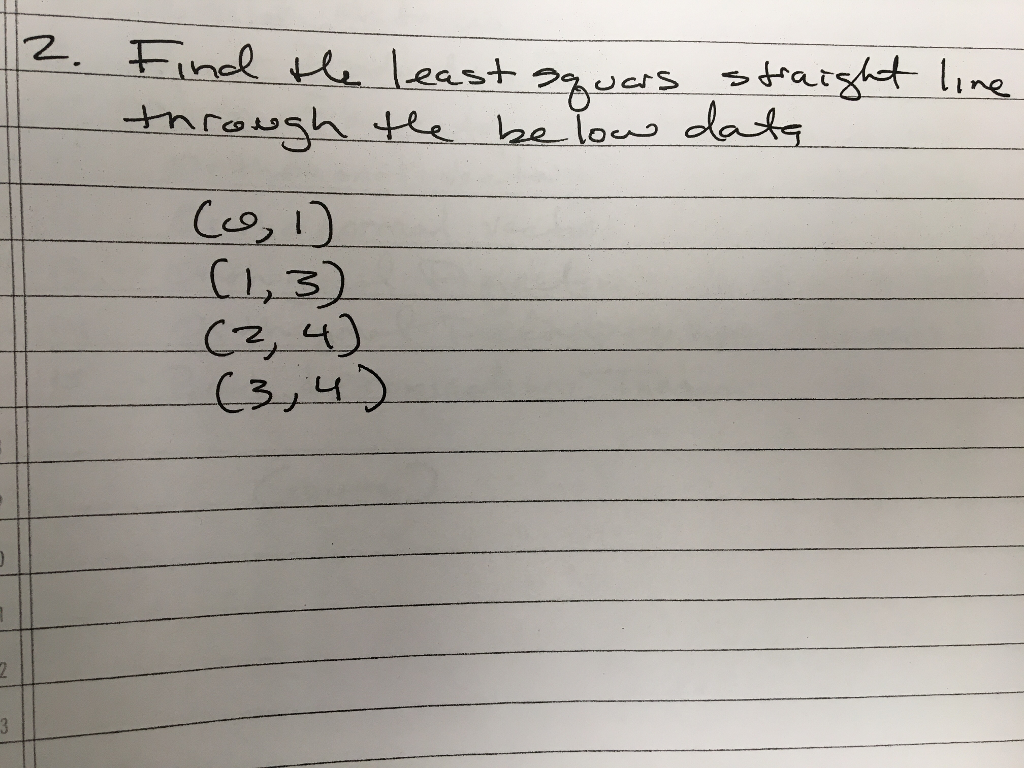 2. Find the least squars straight line
through the below data
(0, 1)
(1, 3)
(2, 4)
(3, 4)